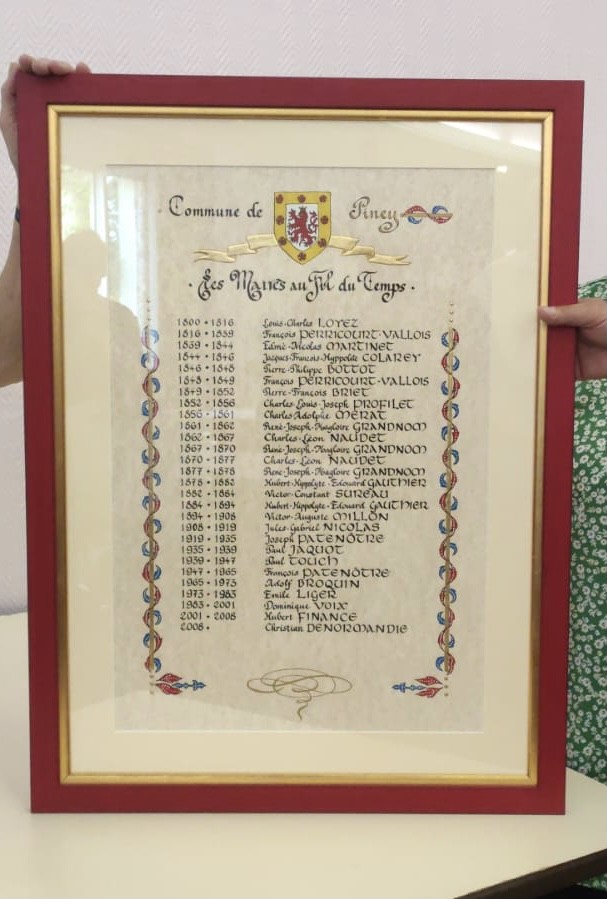 Commune de Piney
Les Maires au Fil du Temps
1800 • 1816 Louis-Charles LOYEZ
1816 • 1839 François PERRICOURT-VALLOIS
1839 • 1844 Edmé-Nicolas MARTINET
1844 • 1846 Jacques-François-Hyppolite COLAREY
1846 • 1848 Pierre-Philippe BOTTOT
1848 • 1849 François PERRICOURT-VALLOIS
1849 • 1852 Pierre-François BRIET
1852 • 1856 Charles-Louis-Joseph PROFILET
1856 • 1861 Charles-Adolphe MÉRAT
1861 • 1862 René-Joseph-Magloire GRANDNOM
1862 • 1867 Charles-Léon NAUDET
1867 • 1870 René-Joseph-Magloire GRANDNOM
1870 • 1877 Charles-Léon NAUDET
1877 • 1878 René-Joseph-Magloire GRANDNOM
1878 • 1882 Hubert-Hippolyte-Edouard GAUTHIER
1882 • 1884 Victor-Constant SUREAU
1884 • 1894 Hubert-Hippolyte-Edouard GAUTHIER
1894 • 1908 Victor-Auguste MILLON
1908 • 1919 Jules-Gabriel NICOLAS
1919 • 1935 Joseph PATENÔTRE
1935 • 1939 Paul JAQUOT
1939 • 1947 Paul TOUCH
1947 • 1965 François PATENÔTRE
1965 • 1973 Adolf BROQUIN
1973 • 1983 Emile LIGER
1983 • 2001 Dominique VOIX
2001 • 2008 Hubert FINANCE
2008 • Christian DENORMANDIE